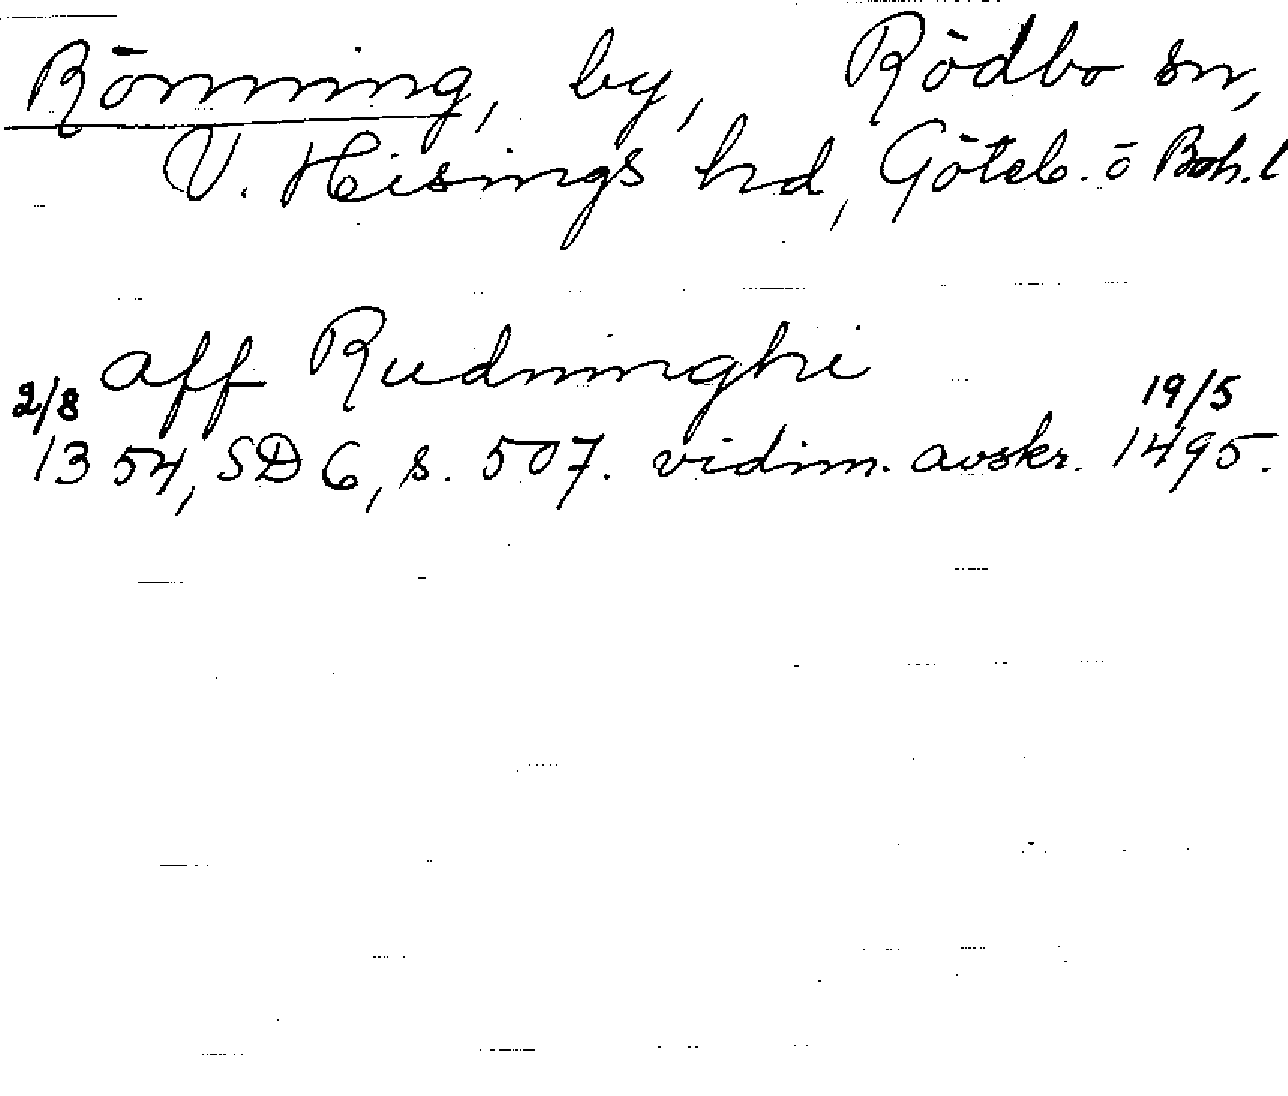 Rönning, by, Rödbo sn,
V. Hisings hd, Göteb. o Boh. l
aff Rudninghi
2/8 19/5
1354, SD 6, s. 507. vidim. avskr. 1495.